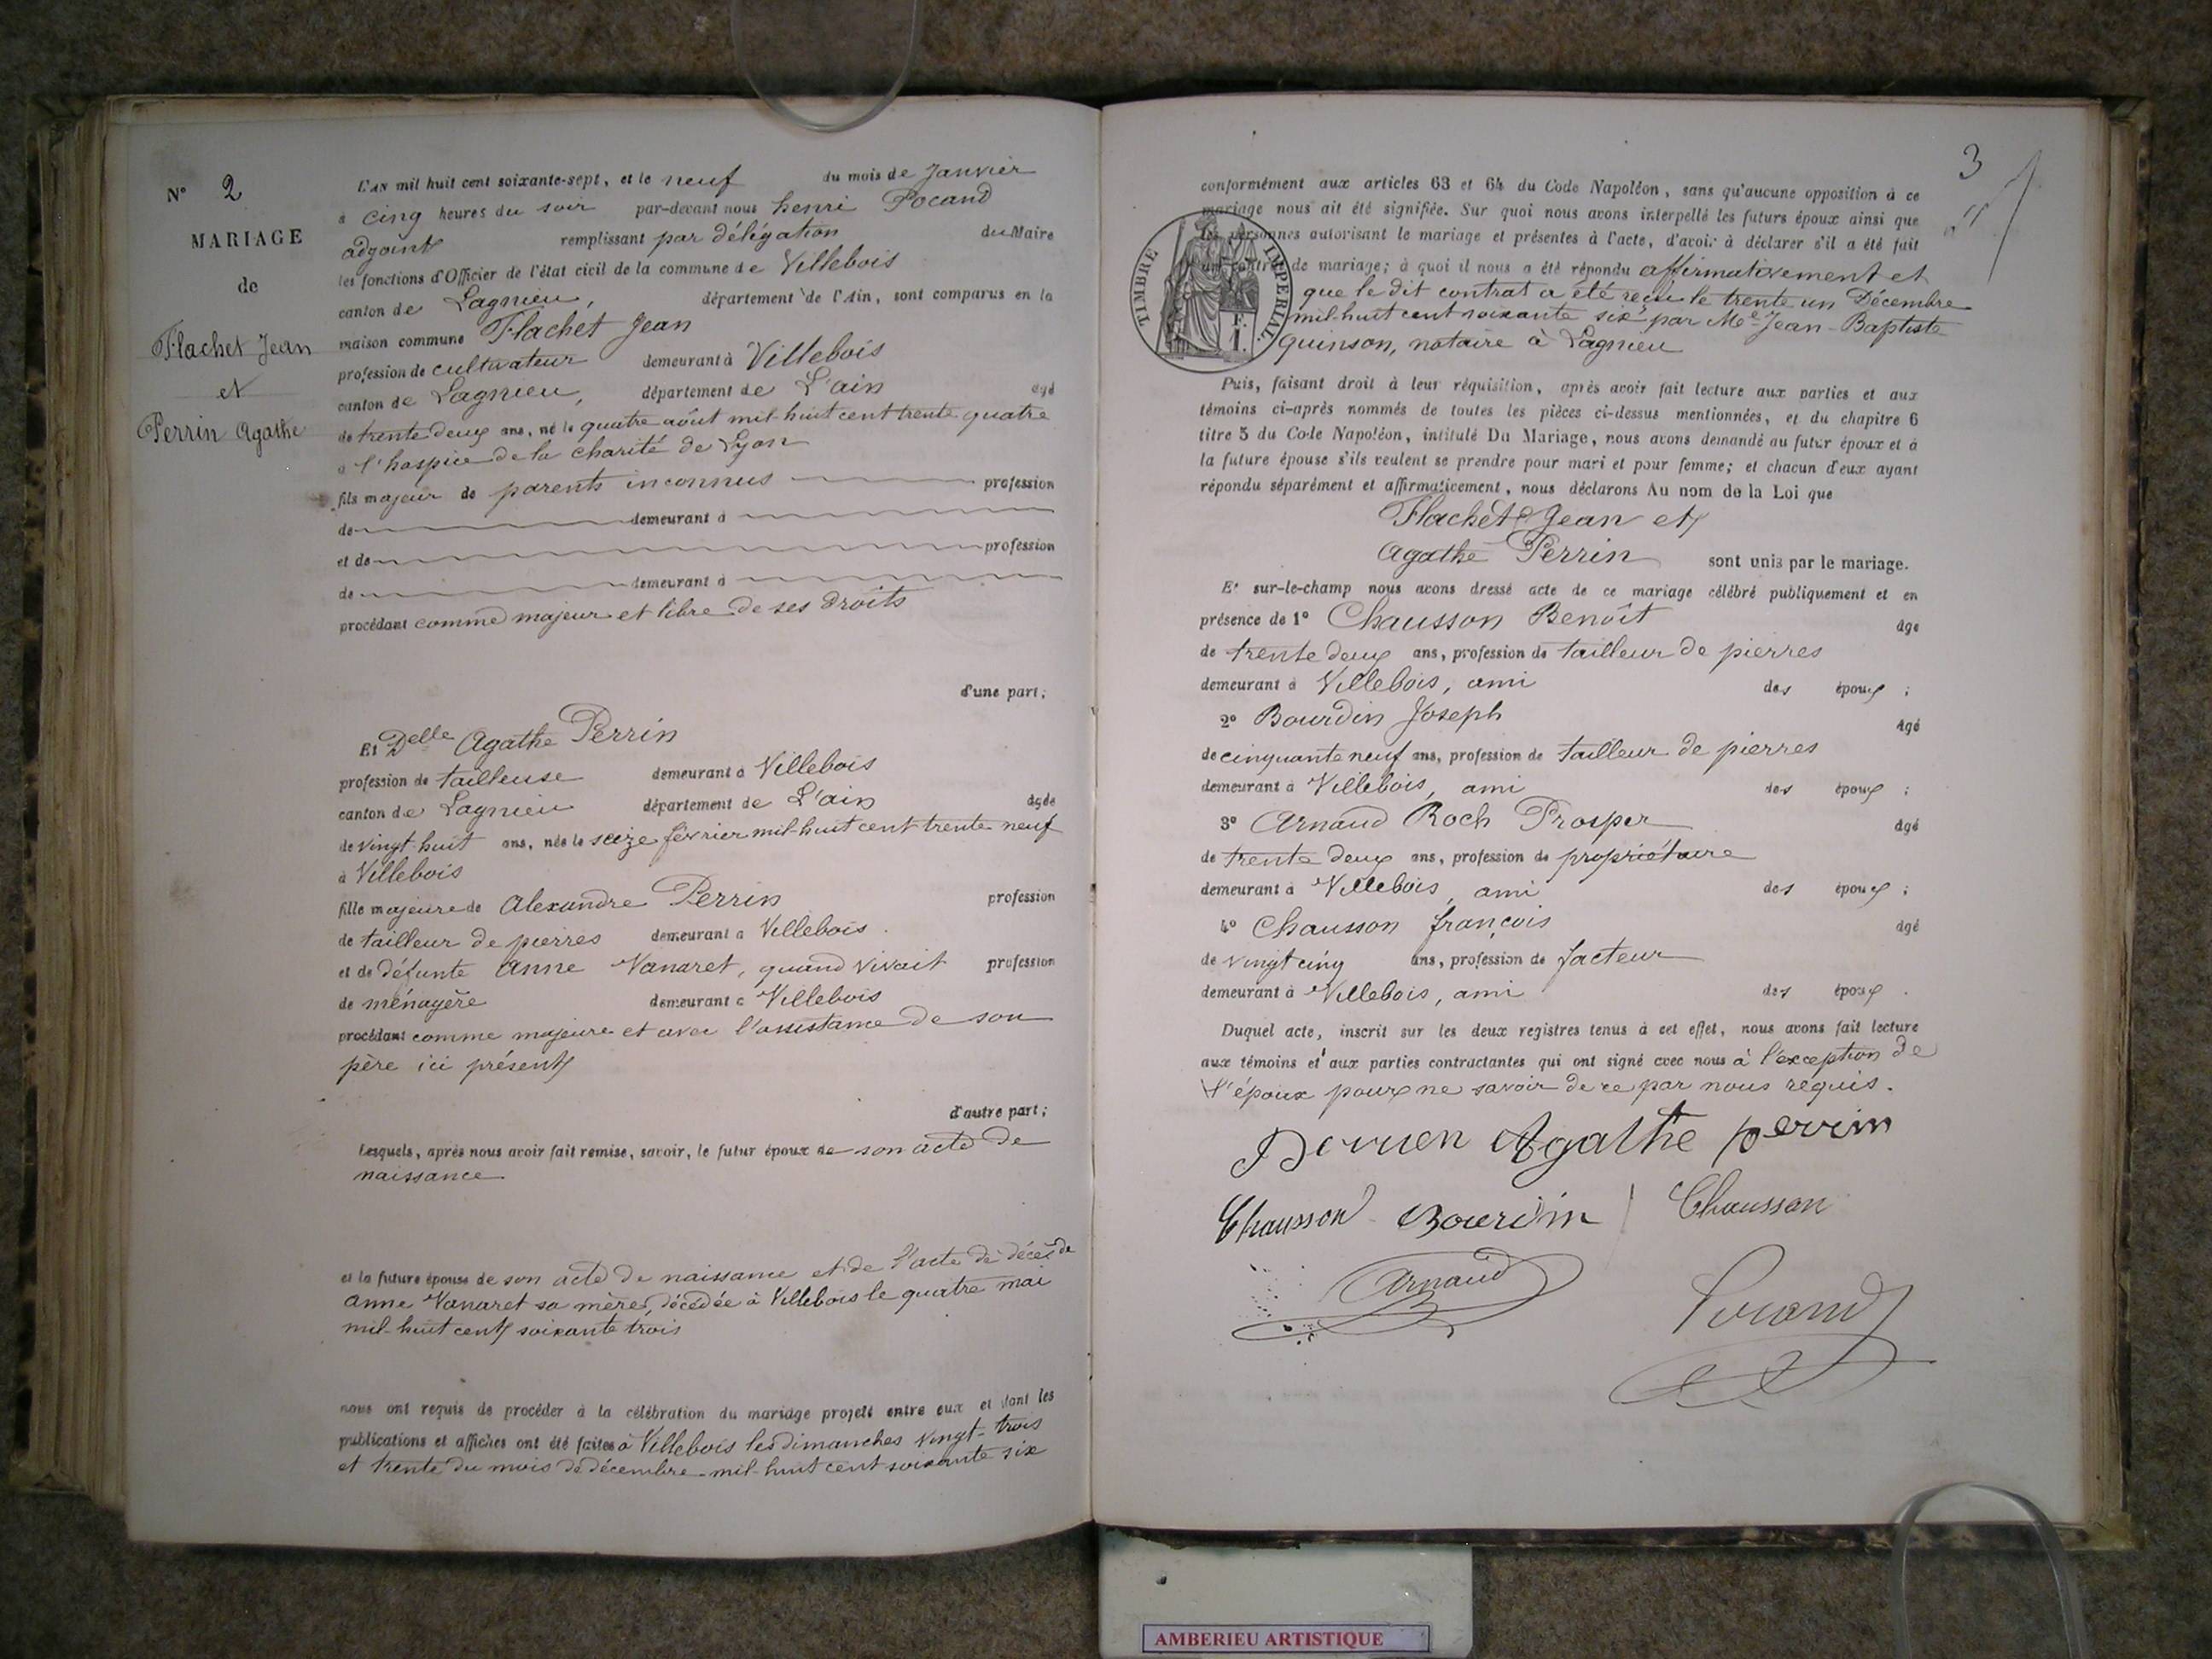 N° 2
MARIAGE
de
Flachet Jean
et
Perrin Agathe
L'AN mil huit cent soixante-sept, et le neuf du mois de Janvier
à cinq heures du soir par-devant nous henri Pocand
adjoint remplissant par délégation du Maire
les fonctions d'Officier de l'état civil de la commune de Villebois
canton de Lagnieu, département de l'Ain, sont comparus en la
maison commune Flachet Jean
profession de cultivateur demeurant à Villebois
canton de Lagnieu, département de L'ain âgé
de trente deux ans, né le quatre août mil-huit cent trente quatre
à l'hospice de la charité de Lyon
fils majeur de parents inconnus profession
de demeurant à
et de profession
de demeurant à
procédant comme majeur et libre de ses droits
d'une part;
Et Delle Agathe Perrin
profession de tailleuse demeurant à Villebois
canton de Lagnieu département de L'ain âgée
de vingt-huit ans, née le seize février mil-huit cent trente neuf
à Villebois
fille majeure de Alexandre Perrin profession
de tailleur de pierres demeurant à Villebois.
et de défunte Anne Vanaret, quand vivait profession
de ménagère demeurant à Villebois
procédant comme majeure et avec l'assistance de son
père ici présent
d'autre part;
Lesquels, après nous avoir fait remise, savoir, le futur époux de son acte de
naissance
et la future épouse de son acte de naissance et de l'acte de décès de
Anne Vanaret sa mère, décédée à Villebois le quatre mai
mil-huit cent soixante trois
nous ont requis de procéder à la célébration du mariage projeté entre eux et dont les
publications et affiches ont été faites à Villebois les dimanches vingt-trois
et trente du mois de décembre mil-huit cent soixante six
3
conformément aux articles 63 et 64 du Code Napoléon, sans qu'aucune opposition à ce
mariage nous ait été signifiée. Sur quoi nous avons interpellé les futurs époux ainsi que
les personnes autorisant le mariage et présentes à l'acte, d'avoir à déclarer s'il a été fait
un contrat de mariage; à quoi il nous a été répondu affirmativement et
que le dit contrat a été reçu le trente un Décembre
mil-huit cent soixante six par Me Jean-Baptiste
quinson, notaire à Lagnieu
TIMBRE IMPERIAL
F.
1.
Puis, faisant droit à leur réquisition, après avoir fait lecture aux parties et aux
témoins ci-après nommés de toutes les pièces ci-dessus mentionnées, et du chapitre 6
titre 5 du Code Napoléon, intitulé Du Mariage, nous avons demandé au futur époux et à
la future épouse s'ils veulent se prendre pour mari et pour femme; et chacun d'eux ayant
répondu séparément et affirmativement, nous déclarons Au nom de la Loi que
Flachet Jean et
Agathe Perrin sont unis par le mariage.
Et sur-le-champ nous avons dressé acte de ce mariage célébré publiquement et en
présence de 1° Chausson Benoît âgé
de trente deux ans, profession de tailleur de pierres
demeurant à Villebois, ami des époux;
2° Bourdin Joseph âgé
de cinquante neuf ans, profession de tailleur de pierres
demeurant à Villebois, ami des époux;
3° Arnaud Roch Prosper âgé
de trente deux ans, profession de propriétaire
demeurant à Villebois, ami des époux;
4° Chausson françois âgé
de vingt cinq ans, profession de facteur
demeurant à Villebois, ami des époux.
Duquel acte, inscrit sur les deux registres tenus à cet effet, nous avons fait lecture
aux témoins et aux parties contractantes qui ont signé avec nous à l'exception de
l'époux pour ne savoir de ce par nous requis.
Agathe perrin
Chausson Bourdin Chausson
Arnaud Pocand
AMBERIEU ARTISTIQUE